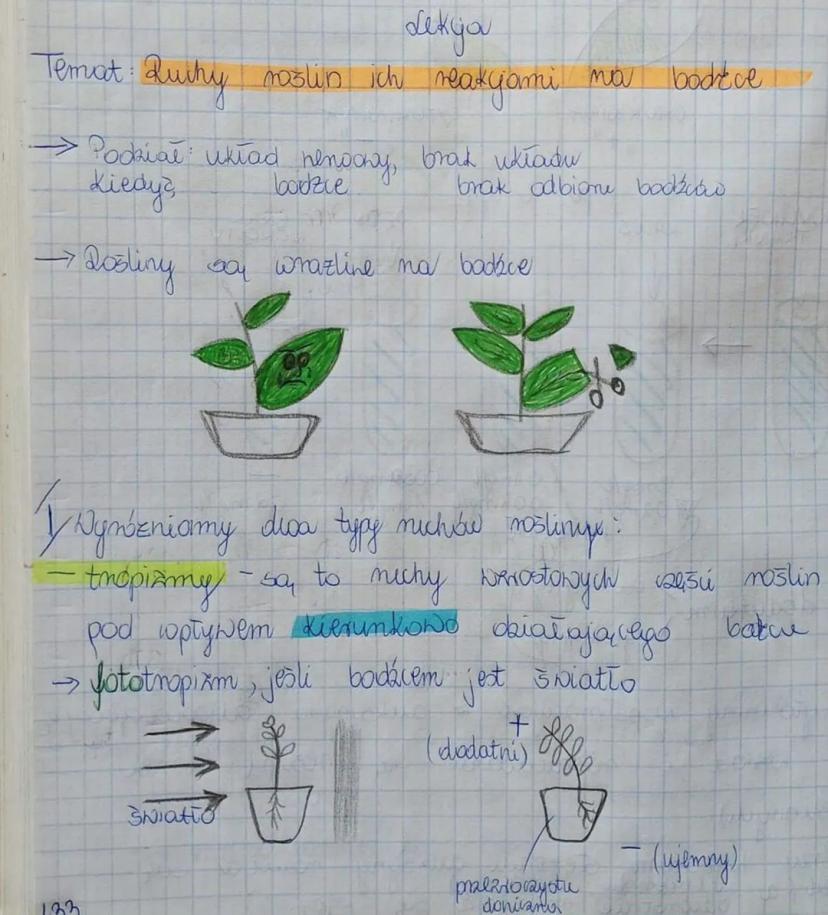 Lekcja
Temat: Ruchy roślin ich reakcjami na bodźce
→ Podział: układ nerwowy, brak układu
kiedyś bodźce brak odbioru bodźców
→ Rośliny są wrażliwe na bodźce
1) Wyróżniamy dwa typy ruchów roślinnych:
- tropizmy - są to ruchy wzrostowych części roślin
pod wpływem kierunkowo działającego
→ fototropizm, jeśli bodźcem jest światło
+
(dodatni)
światło
- (ujemny)
133